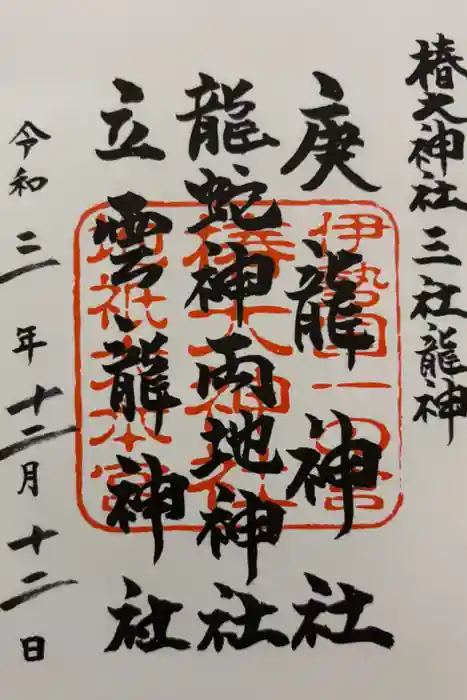 椿大神社三社龍神
庚龍神社
龍蛇神両地神社
立雲龍神社
令和二年十二月十二日
伊勢国一の宮
椿大神社
地祇大本宮